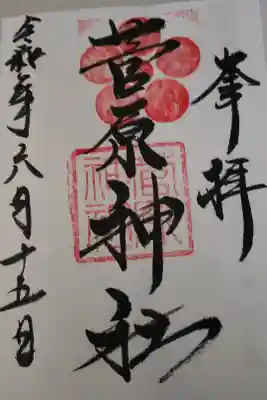 奉拝
菅原神社
令和元年六月十五日